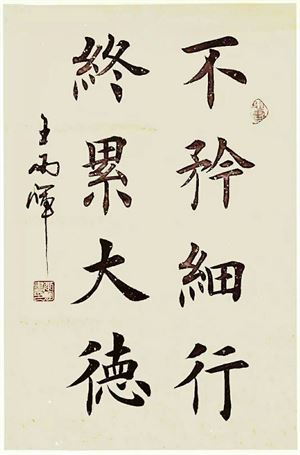 不矜細行
終累大德
王丙㦏